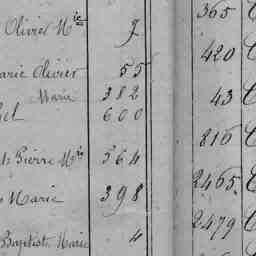 Olivier M ie 9 365
arie Olivier 55 420
Marie 382 43
el 600
816
ts Pierre M ie 564
2465
Marie 398
2479
Baptiste Marie 4